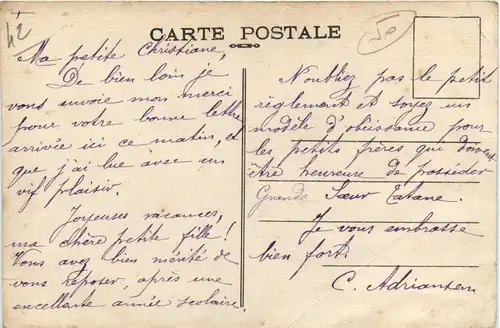 42
CARTE POSTALE
Ma petite Christiane,
De bien loin je
vous envoie mon merci
pour votre bonne lettre
arrivée ici ce matin, et
que j'ai lue avec un
vif plaisir.
Joyeuses vacances,
ma chère petite fille!
Vous avez bien mérité de
vous reposer, après une
excellente année scolaire,
N'oubliez pas le petit
règlement et soyez un
modèle d'obéissance pour
les petits frères qui doivent
être heureux de posséder
Grande Sœur
Je vous embrasse
bien fort.
C. Adriansen